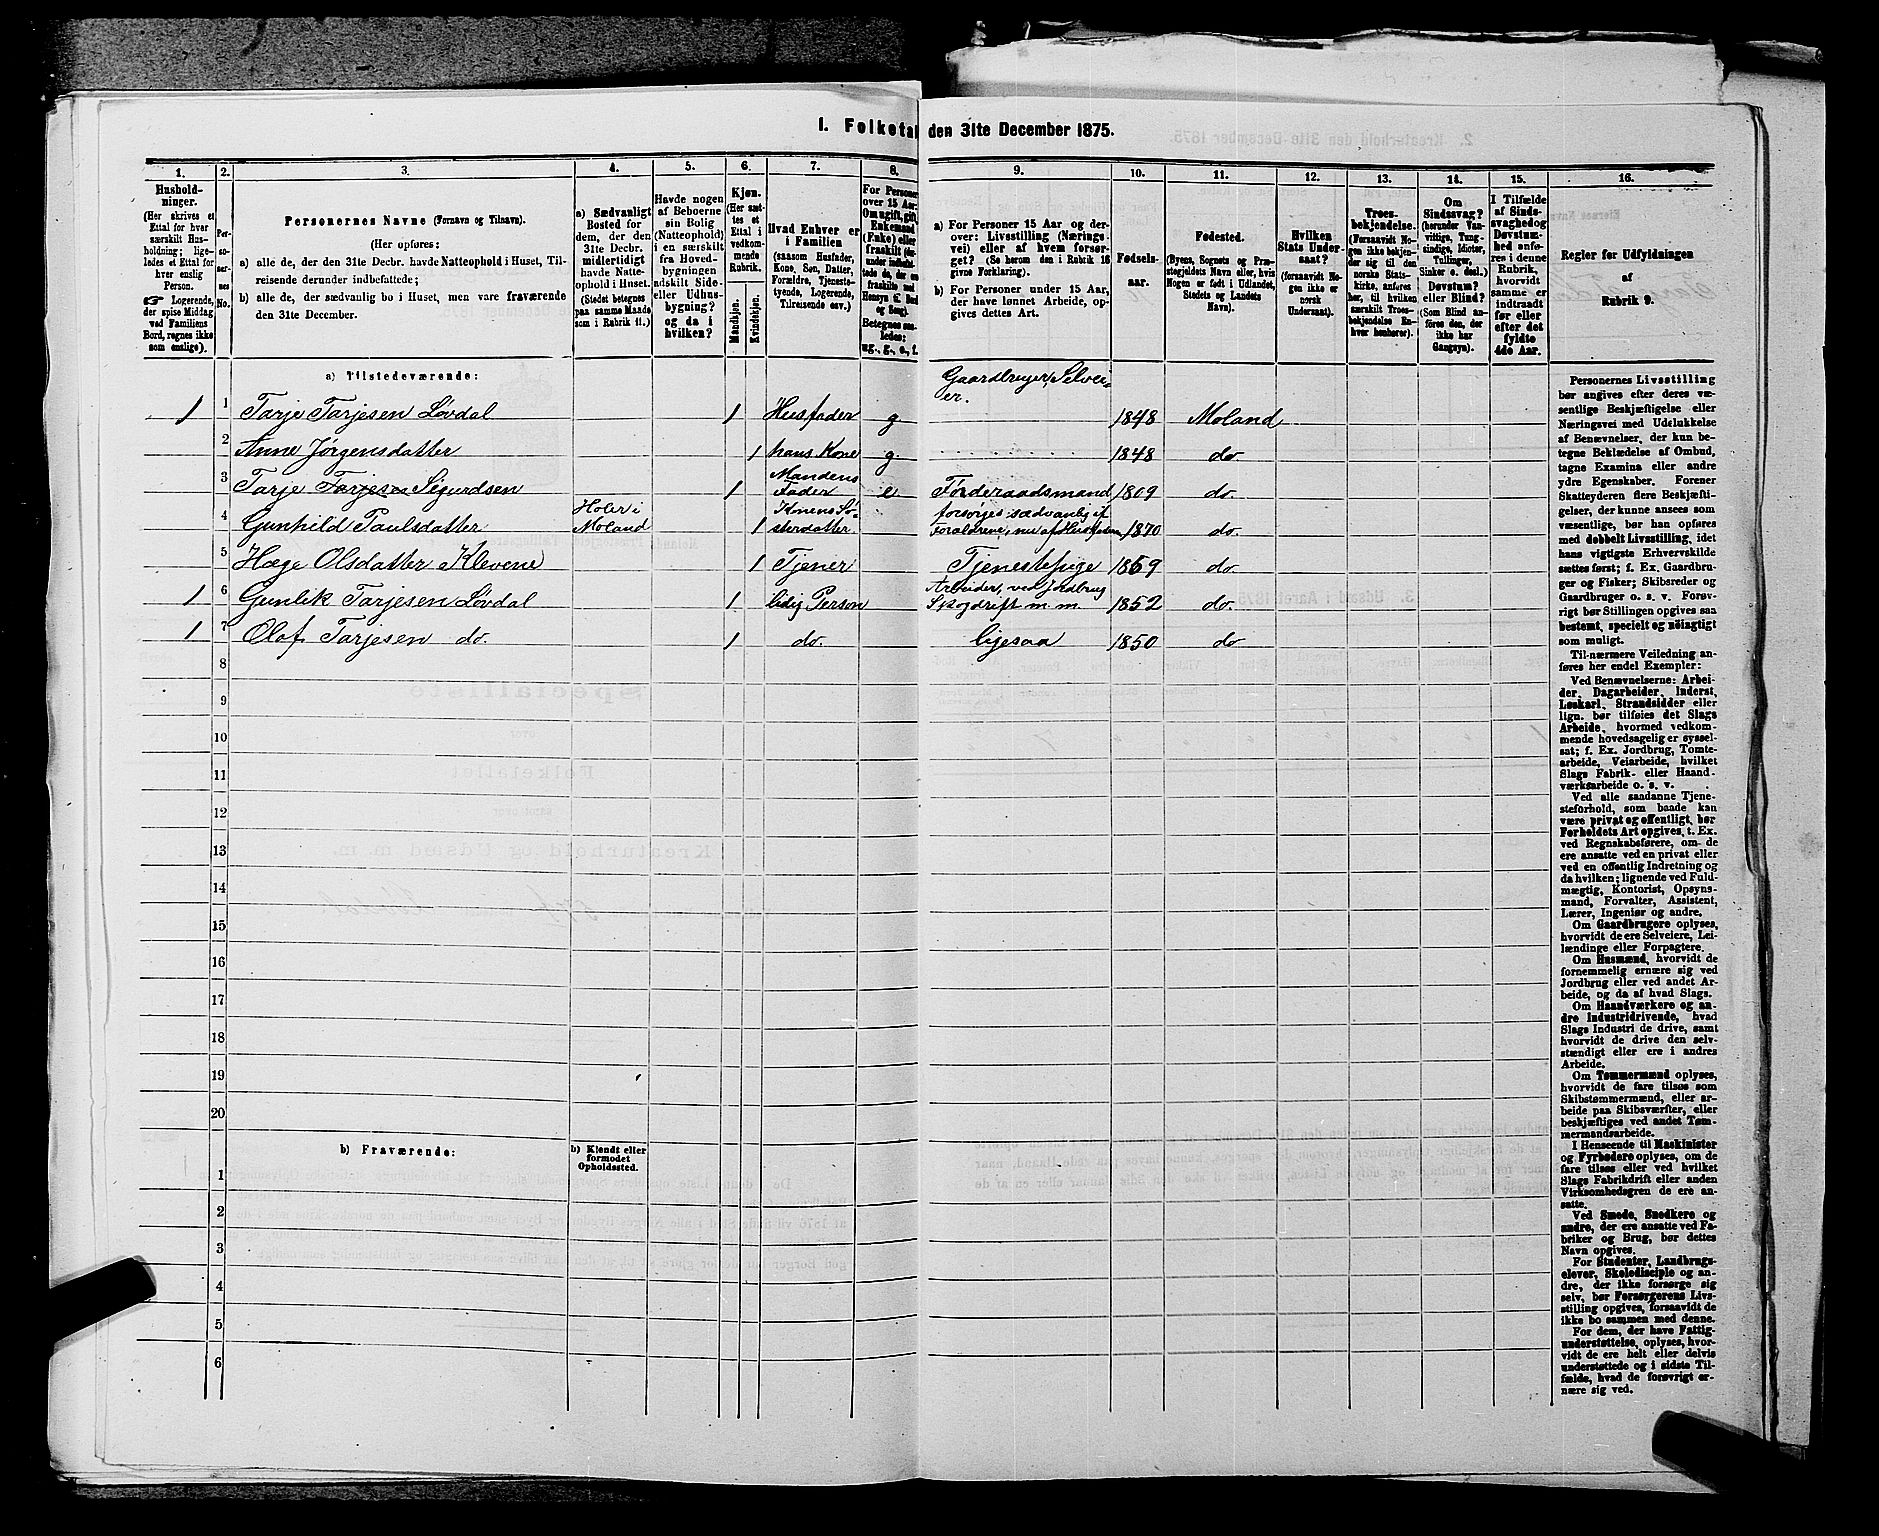 1. Folketal den 31te December 1875.
1. 2. 3. 4. 5. 6. 7. 8. 9. 10. 11. 12. 13. 14. 15. 16.
Hushold-
ninger.
(Her skrives et
Ettal for hver
særskilt Hus-
holdning; lige-
ledes et Ettal for
hver enslig
Person.
☞ Logerende,
der spise Middag
ved Familiens
Bord, regnes ikke
som enslige).
Per-
so-
ner-
nes
No.
Personernes Navne (Fornavn og Tilnavn).
(Her opføres:
a) alle de, der den 31te Decbr. havde Natteophold i Huset, Til-
reisende derunder indbefattede;
b) alle de, der sædvanlig bo i Huset, men vare fraværende
den 31te December.
a) Sædvanligt
Bosted for
dem, der den
31te Decbr.
midlertidigt
havde Natte-
ophold i Huset.
(Stedet betegnes
paa samme Maade
som i Rubrik 11.)
Havde nogen
af Beboerne
sin Bolig
(Natteophold)
i en særskilt
fra Hoved-
bygningen
adskilt Side-
eller Udhus-
bygning?
og da i
hvilken?
Kjøn.
(Her sæt-
tes et
Ettal i
vedkom-
mende
Rubrik.
Mandkjøn.
Kvindekjøn.
Hvad Enhver er
i Familien
(saasom Husfader,
Kone, Søn, Datter,
Forældre, Tjeneste-
tyende, Logerende,
Tilreisende osv.)
For Personer
over 15 Aar:
Om ugift, gift,
Enkemand
(Enke) eller
fraskilt
Betegnes saa-
ledes:
ug., g., e., f.
a) For Personer 15 Aar og der-
over: Livsstilling (Nærings
vei) eller af hvem forsør-
get? (Se herom den i Rubrik 16
givne Forklaring).
b) For Personer under 15 Aar,
der have lønnet Arbeide, op-
gives dettes Art.
Fødsels-
aar.
Fødested.
(Byens, Sognets og Præ-
stegjeldets Navn eller, hvis
Nogen er født i Udlandet,
Stedets og Landets
Navn).
Hvilken
Stats Under-
saat?
(forsaavidt No-
gen ikke er
norsk
Undersaat).
Troes-
bekjendelse.
(Forsaavidt No-
gen ikke bekjen-
der sig til den
norske Stats-
kirke, anføres
her, til hvilken
særskilt Troes-
bekjendelse En-
hver henhører).
Om
Sindssvag?
(herunder Van-
vittige, Tung-
sindige, Idioter,
Tullinger,
Sinker o. desl.)
Døvstum?
eller Blind?
(Som Blind an-
føres den, der
ikke har
Gangsyn).
I Tilfælde
af Sinds-
svaghed og
Døvstum-
hed anfø-
res i denne
Rubrik,
hvorvidt
samme er
indtraadt
før eller
efter det
fyldte
4de Aar.
Regler for Udfyldningen
af
Rubrik 9.
a) Tilstedeværende:
1 1 Tarje Tarjesen Løvdal 1 Husfader g Gaardbruger, Selvei-
er. 1848 Moland
2 Anne Jørgensdatter 1 hans Kone g. 1848 do.
3 Tarje Tarjesen Sigurdsen 1 Mandens
Fader e. Førderaadsmand 1809 do.
4 Gunhild Paulsdatter Holer i
Moland 1 Konens Sø-
sterdatter. forsørges sædvanlig af
Foraldrene, nu af Husfaderen 1870 do.
5 Hæge Olsdatter Klevene 1 Tjener Tjenestepige 1859 do.
1 6 Gunlik Tarjesen Løvdal 1 lidig Person Arbeider, ved Jordbrug
Skogdrift m. m. 1852 do.
1 7 Olaf Tarjesen do. 1 do. ligesaa 1850 do
8
9
10
11
12
13
14
15
16
17
18
19
20
b) Fraværende: b) Kjendt eller
formodet
Opholdssted.
1
2
3
4
5
6
Personernes Livsstilling
bør angives efter deres væ-
sentlige Beskjæftigelse eller
Næringsvei med Udelukkelse
af Benævnelser, der kun be-
tegne Beklædelse af Ombud,
tagne Examina eller andre
ydre Egenskaber. Forener
Skatteyderen flere Beskjæfti-
gelser, der kunne ansees som
væsentlige, bør han opføres
med dobbelt Livsstilling, idet
hans vigtigste Erhvervskilde
sættes først; f. Ex. Gaardbru-
ger og Fisker; Skibsreder og
Gaardbruger o. s. v. Forøv-
rigt bør Stillingen opgives saa
bestemt, specielt og nöiagtigt
som muligt.
Til nærmere Veiledning an-
føres her endel Exempler:
Ved Benævnelserne: Arbei-
der, Dagarbeider, Inderst,
Løskarl, Strandsidder eller
lign. bør tilføies det Slags
Arbeide, hvormed vedkom-
mende hovedsagelig er syssel-
sat; f. Ex. Jordbrug, Tomte-
arbeide, Veiarbeide, hvilket
Slags Fabrik- eller Haand-
værksarbeide o. s. v.
Ved alle saadanne Tjene-
steforhold, som baade kan
være privat og offentligt, bør
Forholdets Art opgives, t. Ex.
ved Regnskabsførere, om de
ere ansatte ved en privat eller
ved en offentlig Indretning og
da hvilken; lignende ved Fuld-
mægtig, Kontorist, Opsyns-
mand, Forvalter, Assistent,
Lærer, Ingeniør og andre.
Om Gaardbrugere oplyses,
hvorvidt de ere Selveiere, Lei-
lændinge eller Forpagtere.
Om Husmænd, hvorvidt de
fornemmelig ernære sig ved
Jordbrug eller ved andet Ar-
beide, og da af hvad Slags.
Om Haandværkere og an-
dre Industridrivende, hvad
Slags Industri de drive, samt
hvorvidt de drive den selv-
stændigt eller ere i andres
Arbeide.
Om Tømmermænd oplyses,
hvorvidt de fare tilsøs som
Skibstømmermænd, eller ar-
beide paa Skibsværfter, eller
beskjæftiges ved andet Tøm-
mermandsarbeide.
I Henseende til Maskinister
og Fyrbødere oplyses, om de
fare tilsøs eller ved hvilket
Slags Fabrikdrift eller anden
Virksomhedsgren de ere an-
satte.
Ved Smede, Snedkere og
andre, der ere ansatte ved Fa-
briker og Brug, bør dettes
Navn opgives.
For Studenter, Landbrugs-
elever, Skoledisciple og an-
dre, der ikke forsørge sig
selv, bør Forsørgerens Livs-
stilling opgives, forsaavidt de
ikke bo sammen med denne.
For dem, der have Fattig-
understøttelse, oplyses, hvor-
vidt de ere helt eller delvis
understøttede og i sidste Til-
fælde, hvad de forøvrigt er-
nære sig ved.